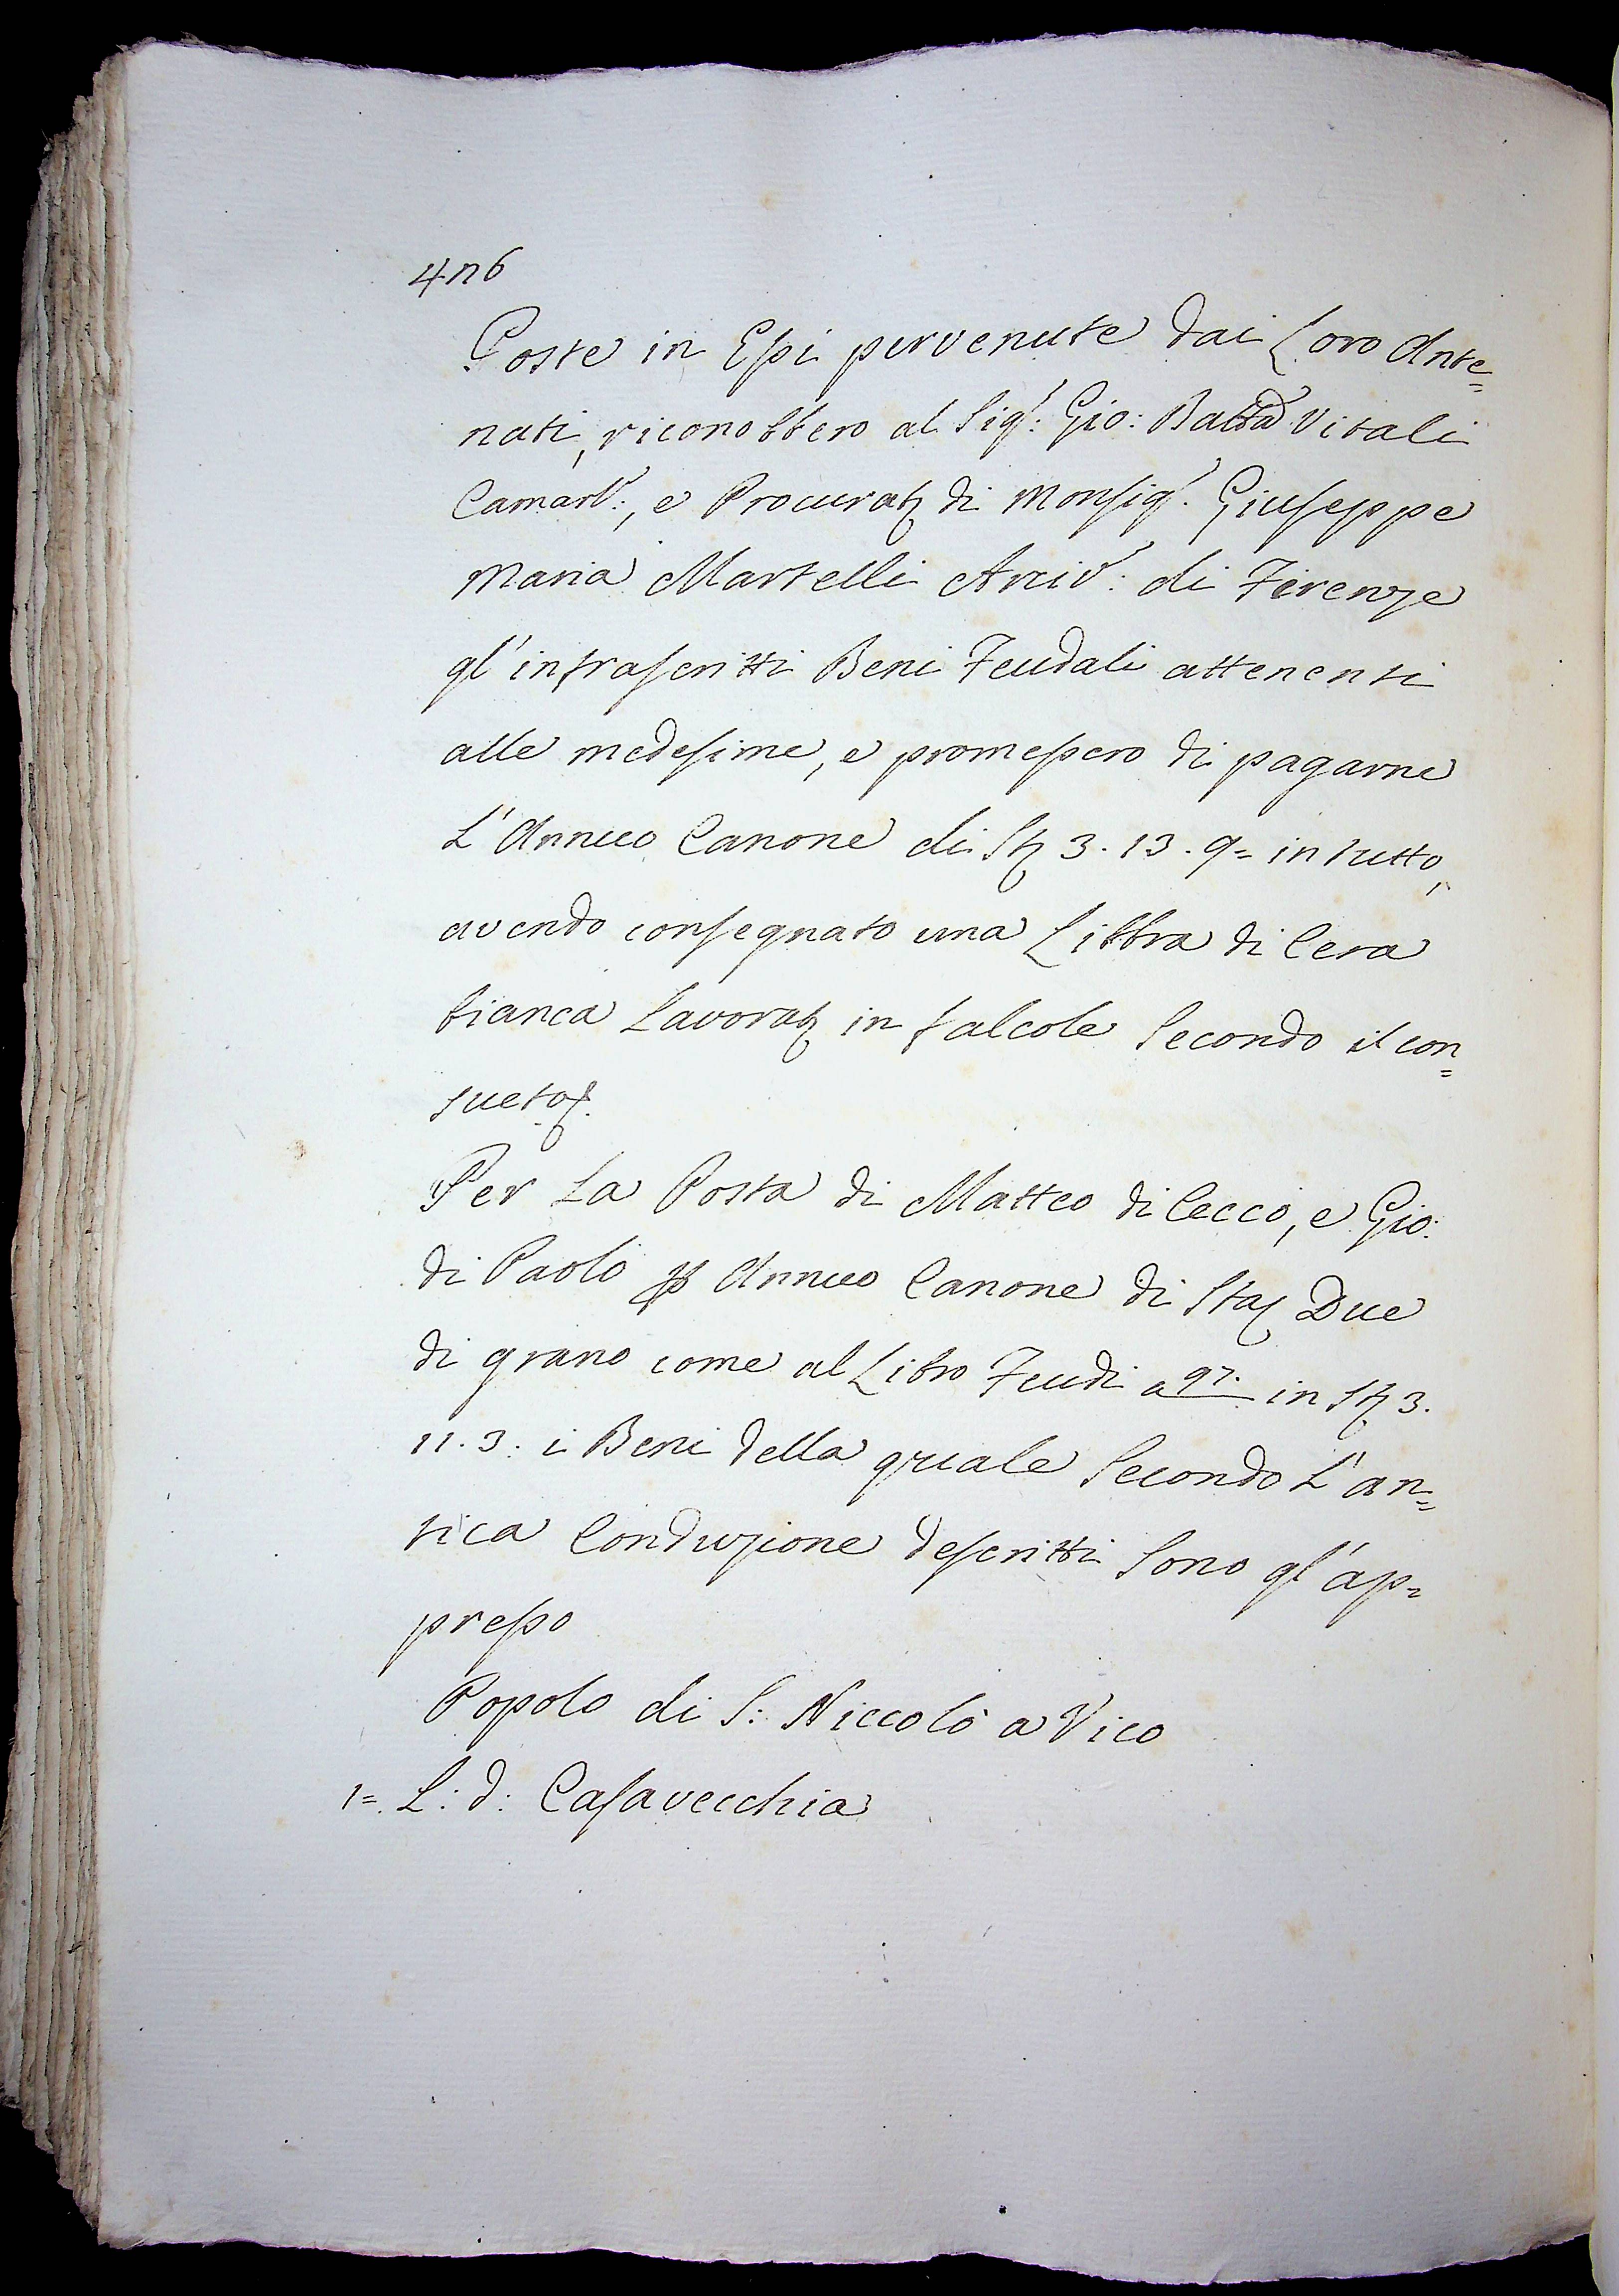 476
Poste in Essi pervenute dai Loro Ante=
nati, riconobbero al Sig.r: Gio: Batta Vitali
Camarl.o:, e Procurat. di Monsig.r: Giuseppe
Maria Martelli Arciv.o: di Firenze
gl'infrascritti Beni Feudali attenenti
alle medesime, e promessero di pagarne
L'Annuo Canone di St. 3. 13. 9= in tutto,
avendo consegnato una Libbra di Cera
bianca Lavorat. in falcole Secondo il con=
sueto.
Per La Posta di Matteo di Cecco, e Gio:
di Paolo p Annuo Canone di Sta. Due
di grano come al Libro Feudi a 97. in St. 3.
11. 3: i Beni della quale Secondo L'an=
tica Conduzione descritti Sono gl'ap=
presso
Popolo di S: Niccolò a Vico
1=. L: d: Casavecchia